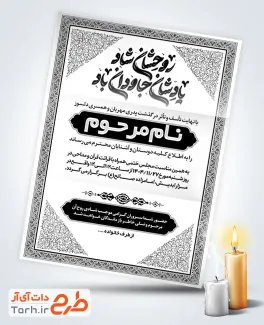 روحشان شاد
یادشان جاودان باد
با نهایت تأسف و تأثر درگذشت پدری مهربان و همسری دلسوز
نام مرحوم
را به اطلاع کلیه دوستان و آشنایان محترم می رساند،
به همین مناسبت مجلس ختمی همراه با قرائت قرآن و مداحی در
روز شنبه مورخ ۱۴۰۳/۱۱/۲۷ از ساعت
برگزار می گردد.
حضور شما سروران گرامی موجب شادی روح آن
مرحوم و تسلی خاطر بازماندگان خواهد شد
از طرف خانواده ...
طرح دات آی آر
Tarh.ir